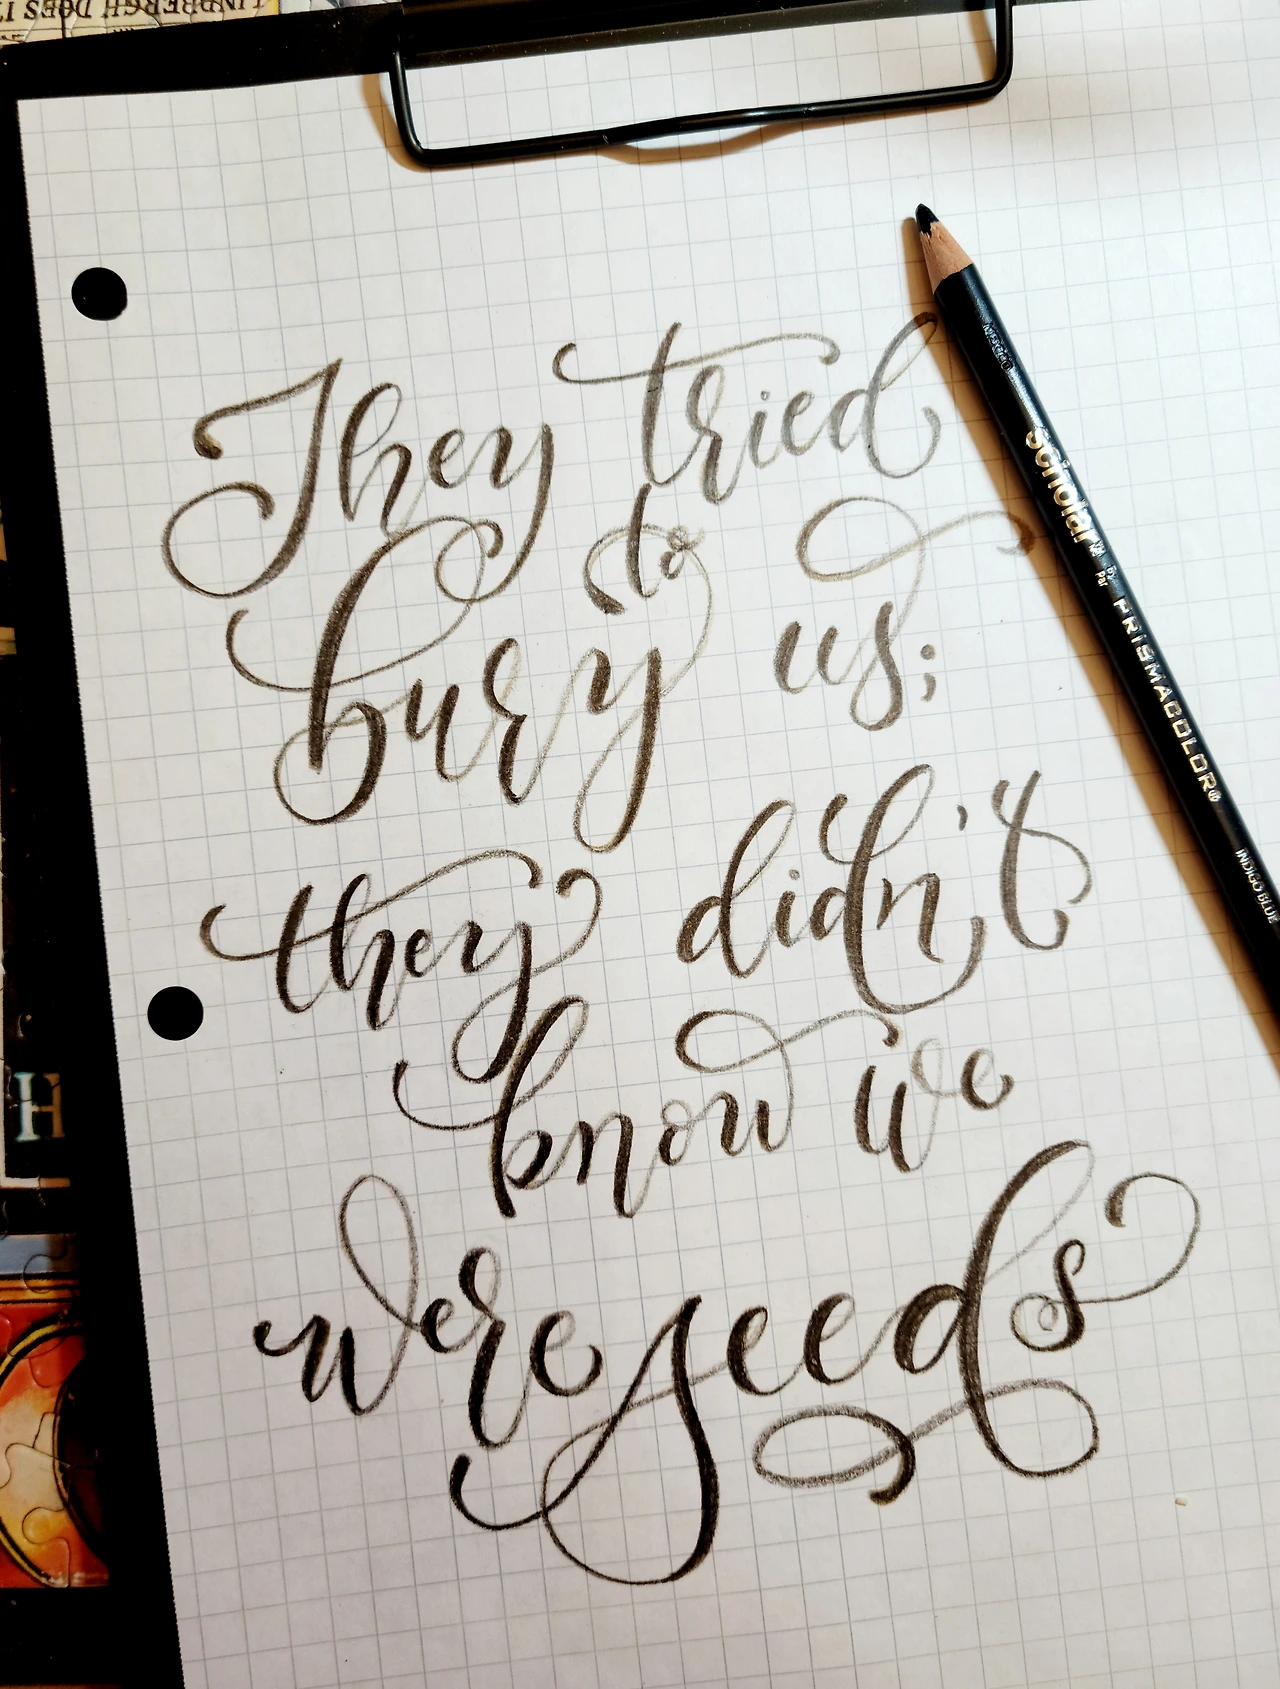 LINDBERGH DOES IT
They tried
to
bury us;
they didn't
know we
were seeds
Scholar™ by Par PRISMACOLOR® INDIGO BLUE
H